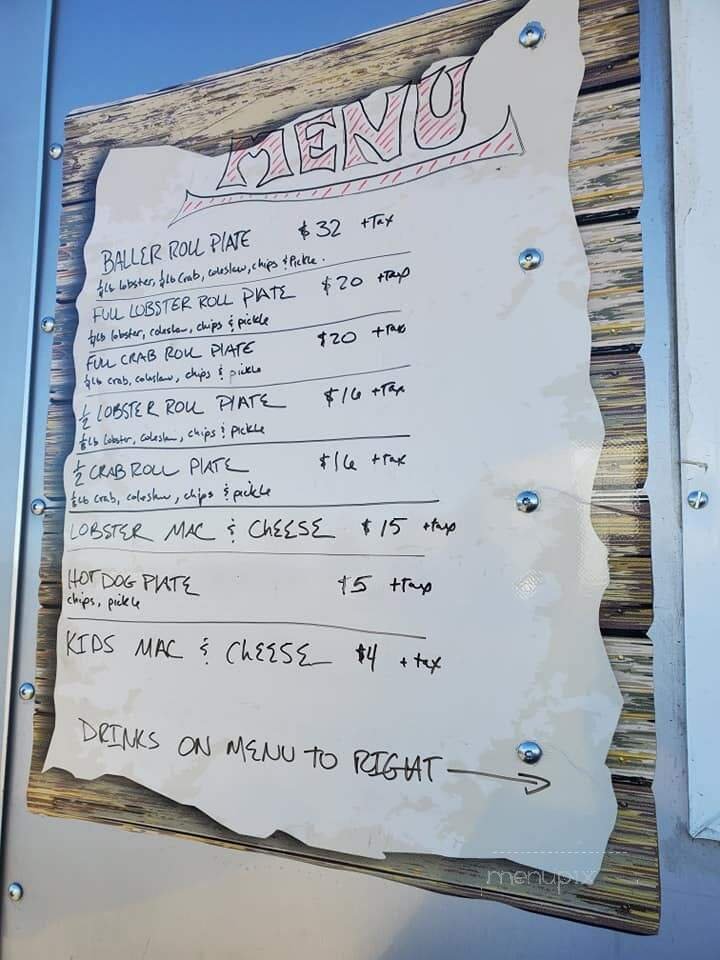 MENU
BALLER ROLL PLATE $32 +Tax
¼lb lobster, ¼lb crab, coleslaw, chips & Pickle.
FULL LOBSTER ROLL PLATE $20 +Tax
¼lb lobster, coleslaw, chips & pickle
FULL CRAB ROLL PLATE $20 +Tax
¼lb crab, coleslaw, chips & pickle
½ LOBSTER ROLL PLATE $16 +Tax
⅛Lb lobster, coleslaw, chips & pickle
½ CRAB ROLL PLATE $16 +Tax
⅛Lb crab, coleslaw, chips & pickle
LOBSTER MAC & CHEESE $15 +tax
HOT DOG PLATE $5 +Tax
chips, pickle
KIDS MAC & CHEESE $4 + tax
DRINKS ON MENU TO RIGHT
menupix